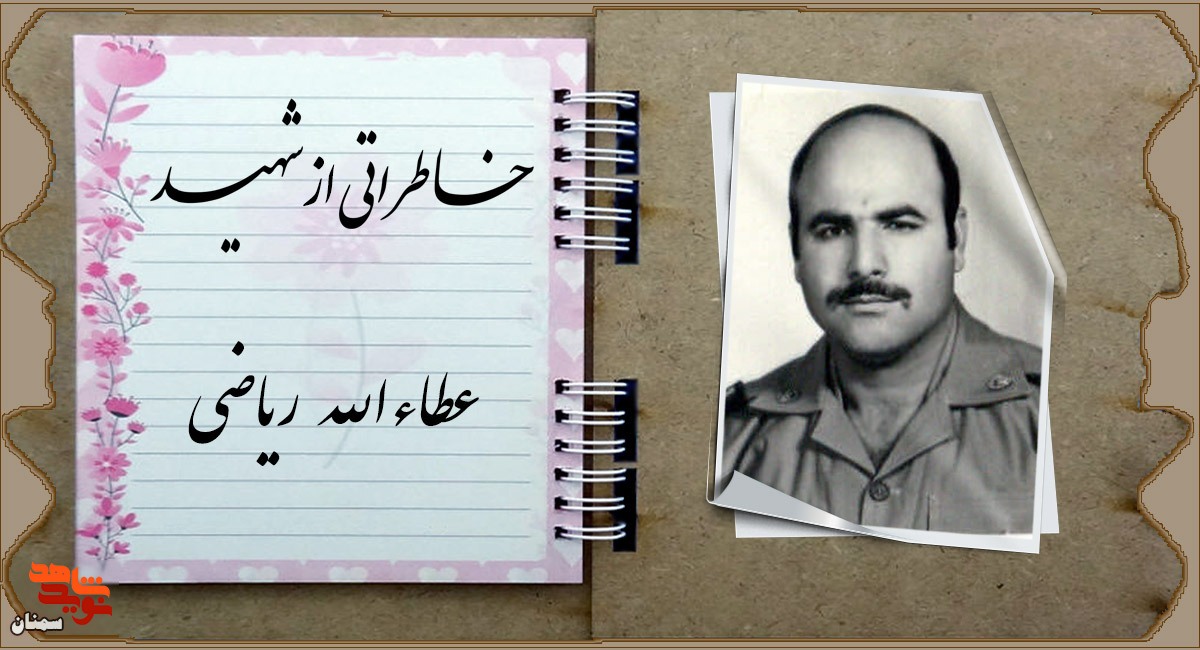 خاطراتی از شهید
عطاءالله ریاضی
نوید شاهد
سمنان